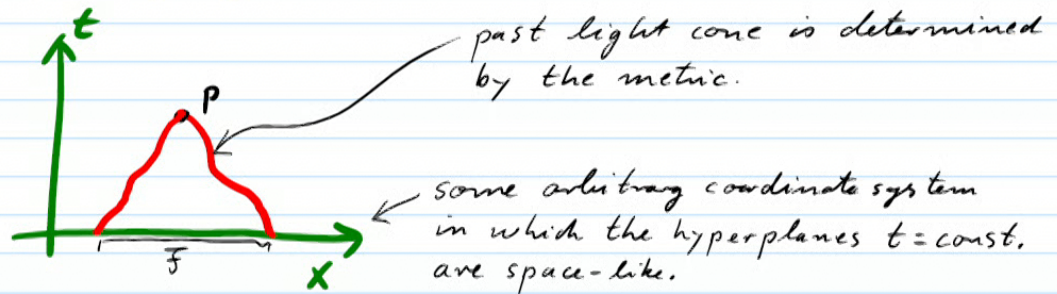 t
past light cone is determined
by the metric.
P
some arbitrary coordinate system
in which the hyperplanes t = const.
are space-like.
x